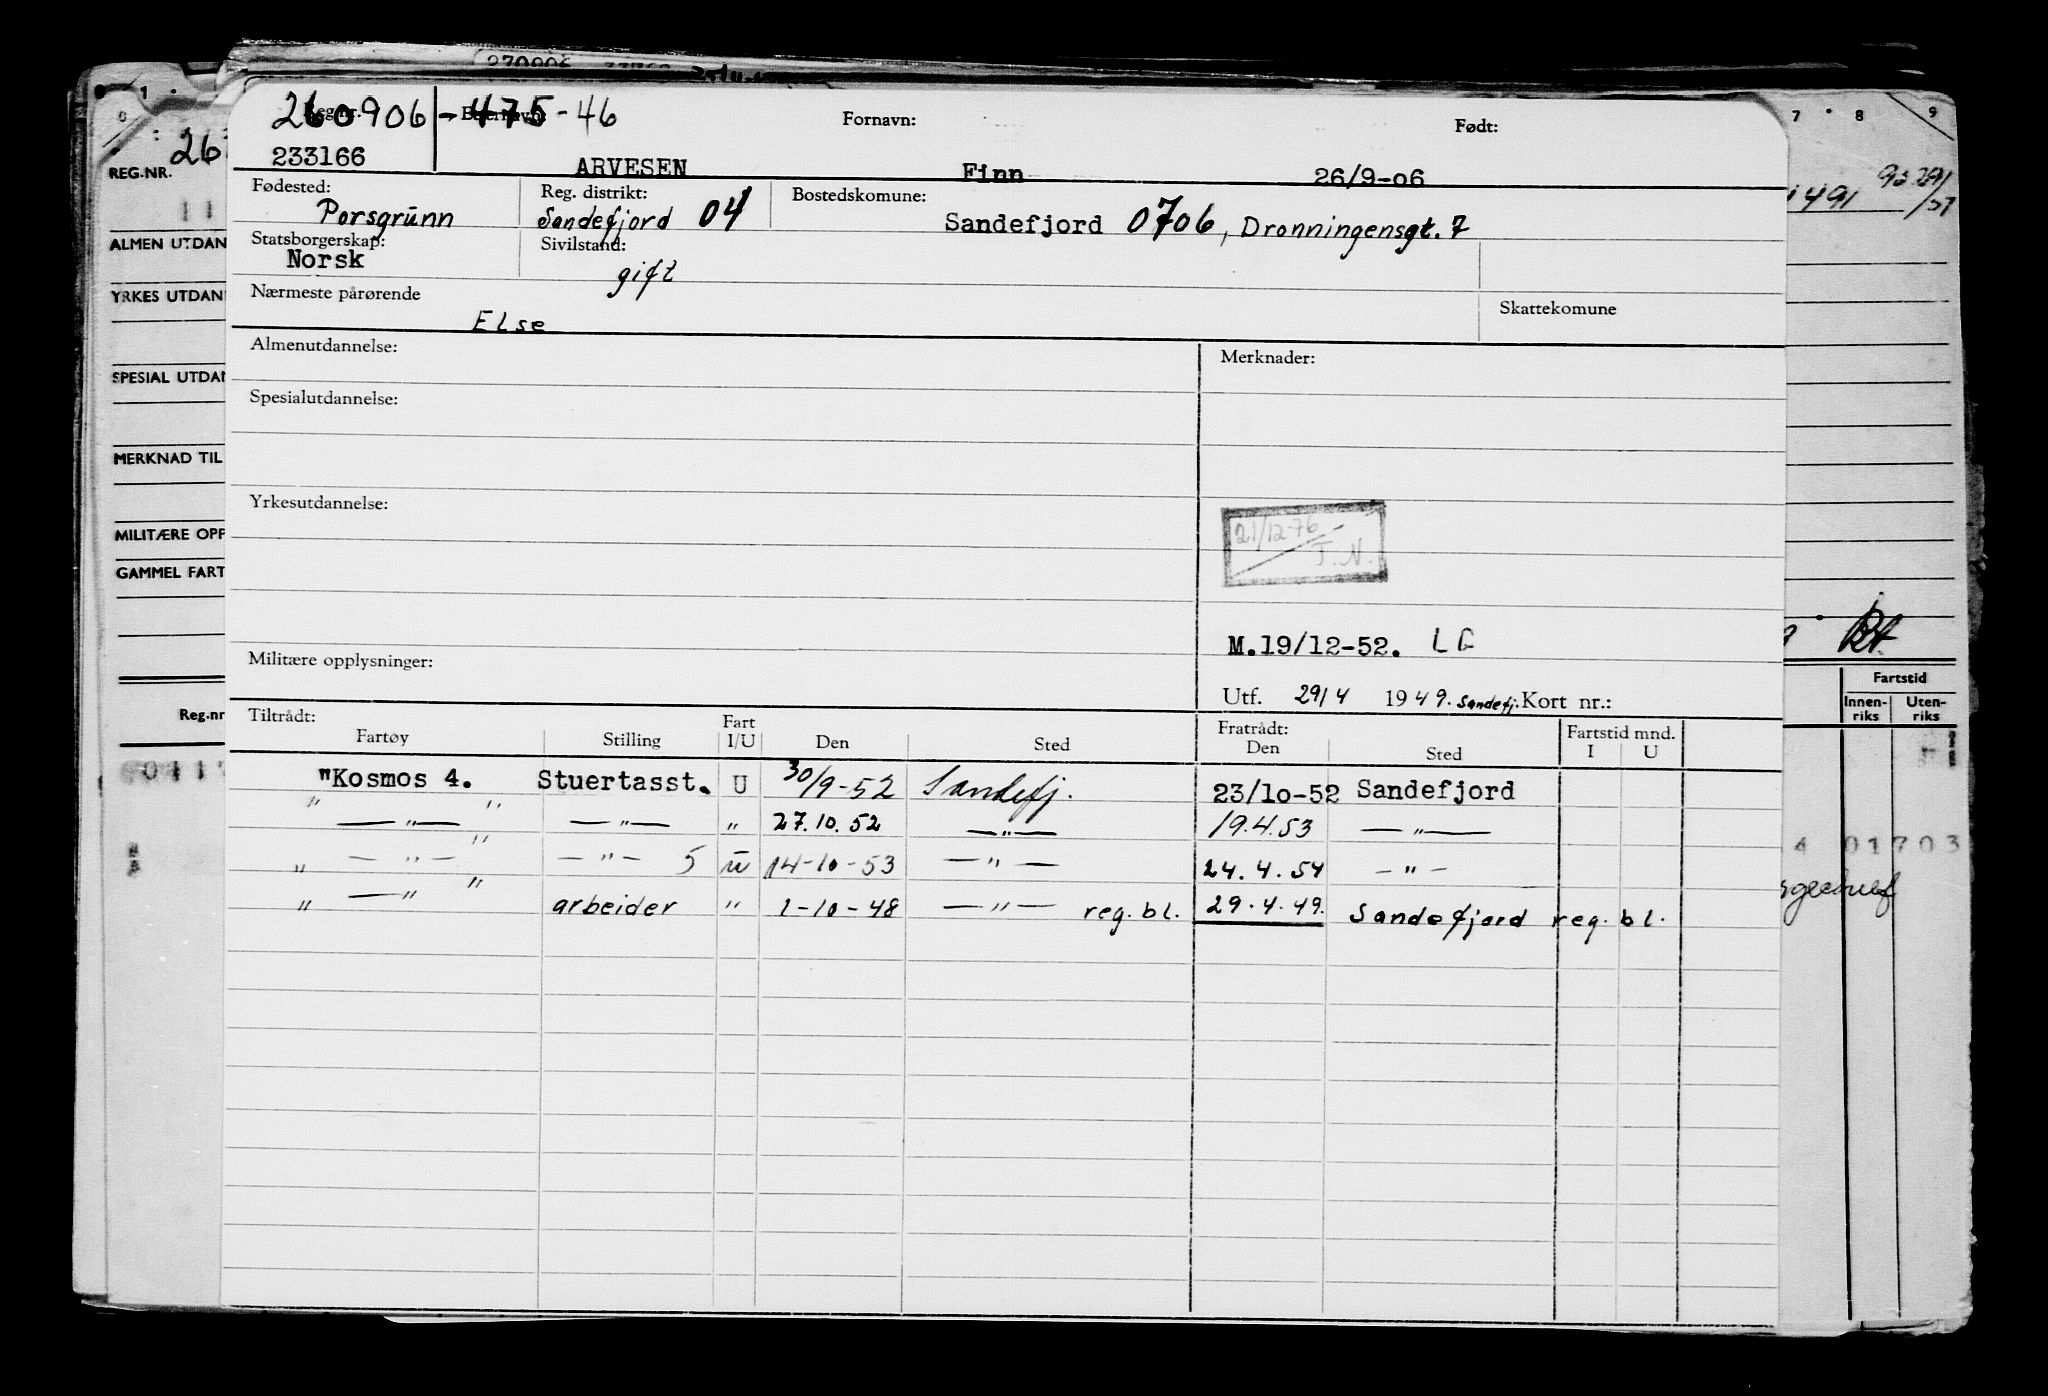 260906-475-46
Reg.nr. Etternavn: Fornavn: Født:
233166 ARVESEN Finn 26/9-06
Fødested: Reg. distrikt: Bostedskomune:
Porsgrunn Sandefjord 04 Sandefjord 0706, Dronningensgt. 7
Statsborgerskap: Sivilstand:
Norsk gift
Nærmeste pårørende Skattekomune
Else
Almenutdannelse: Merknader:
Spesialutdannelse:
Yrkesutdannelse:
21/12-76
T.N.
M.19/12-52. LG
Militære opplysninger:
Utf. 29/4 1949. Sandefj. Kort nr.:
Tiltrådt: Fart Fratrådt: Fartstid mnd.
Fartøy Stilling I/U Den Sted Den Sted I U
"Kosmos 4. Stuertasst. U 30/9-52 Sandefj. 23/10-52 Sandefjord
" — " — " — " — " 27.10.52 — " — 19.4.53 — " —
" — " — " — " — 5 u 14-10-53 — " — 24.4.54 — " —
" — " " arbeider " 1-10-48 — " — reg. bl. 29.4.49. Sandefjord reg. bl.
1
REG.NR. 26
ALMEN UTDAN
YRKES UTDAN
SPESIAL UTDAN
MERKNAD TIL
MILITÆRE OPP
GAMMEL FART
Reg.nr
7 8 9
491
Fartstid
Innen- Uten-
riks riks
4 01703